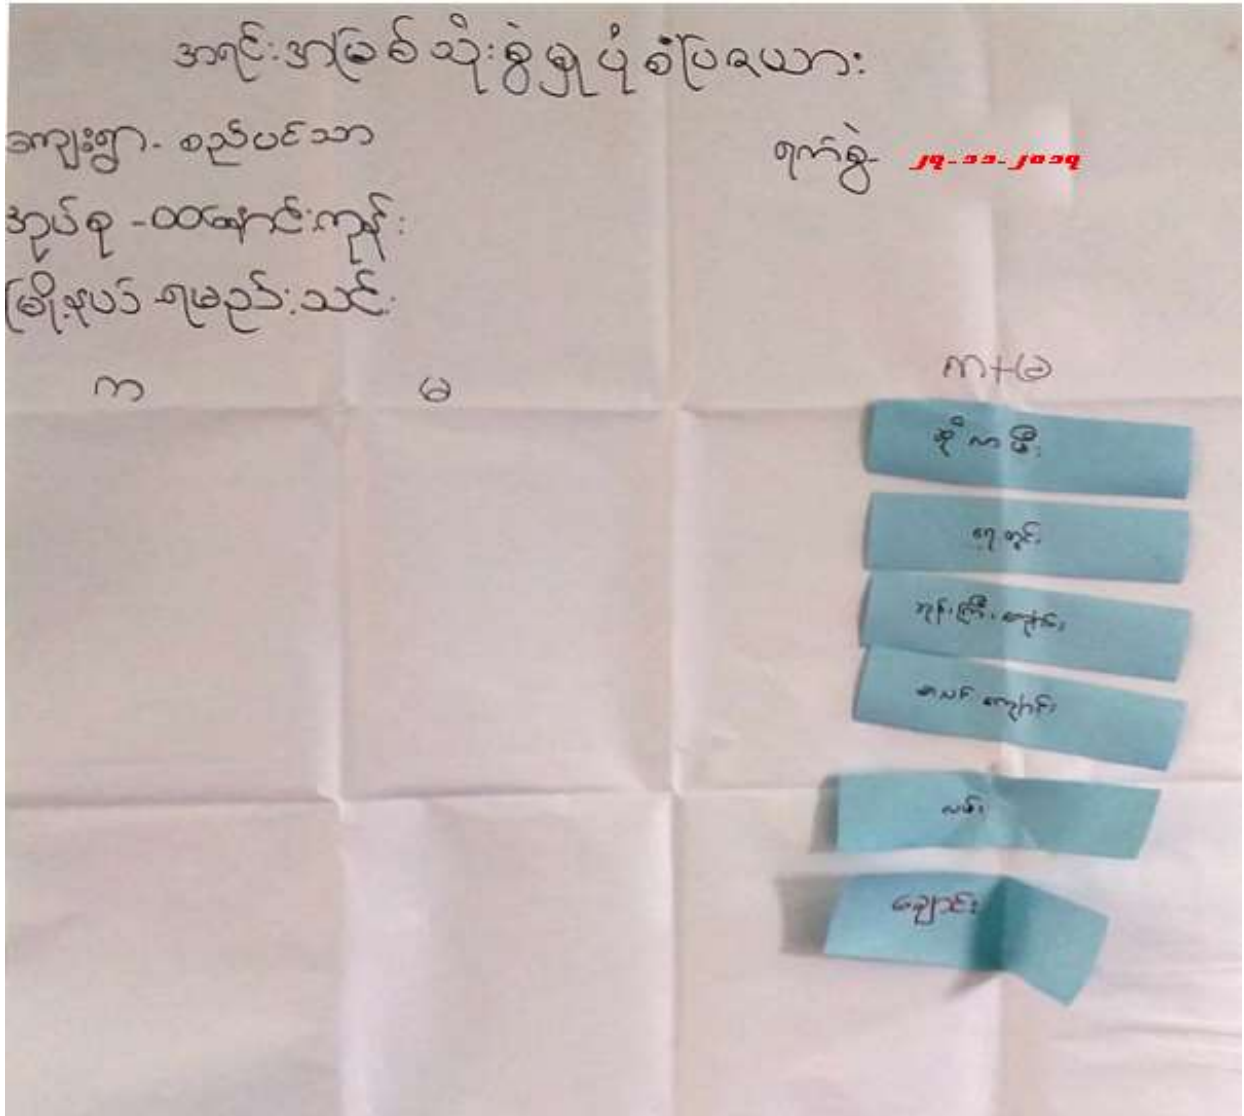 အရင်းအမြစ်သုံးစွဲမှုပုံစံပြဇယား
ကျေးရွာ- စည်ပင်သာ
ရက်စွဲ- ၂၇-၁၁-၂၀၁၇
အုပ်စု -ထနောင်းကုန်း
မြို့နယ် ရမည်းသင်း
က
မ
က+မ
ဆိုလာမီး
ရေတွင်း
ဘုန်းကြီးကျောင်း
စာသင်ကျောင်း
လမ်း
ချောင်း